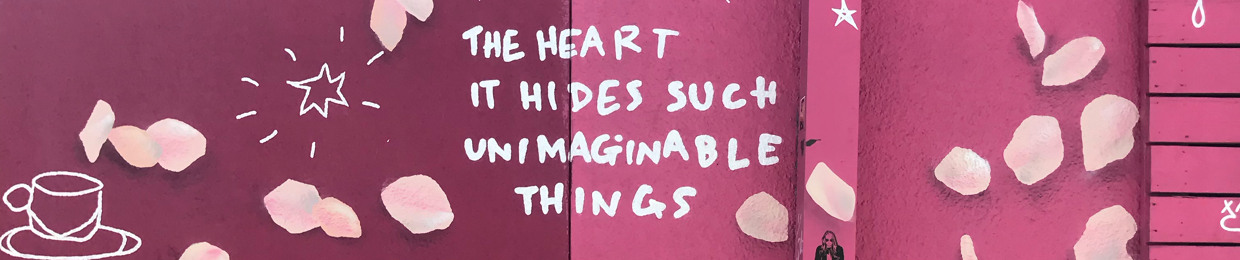 THE HEART
IT HIDES SUCH
UNIMAGiNABLE
THINGS